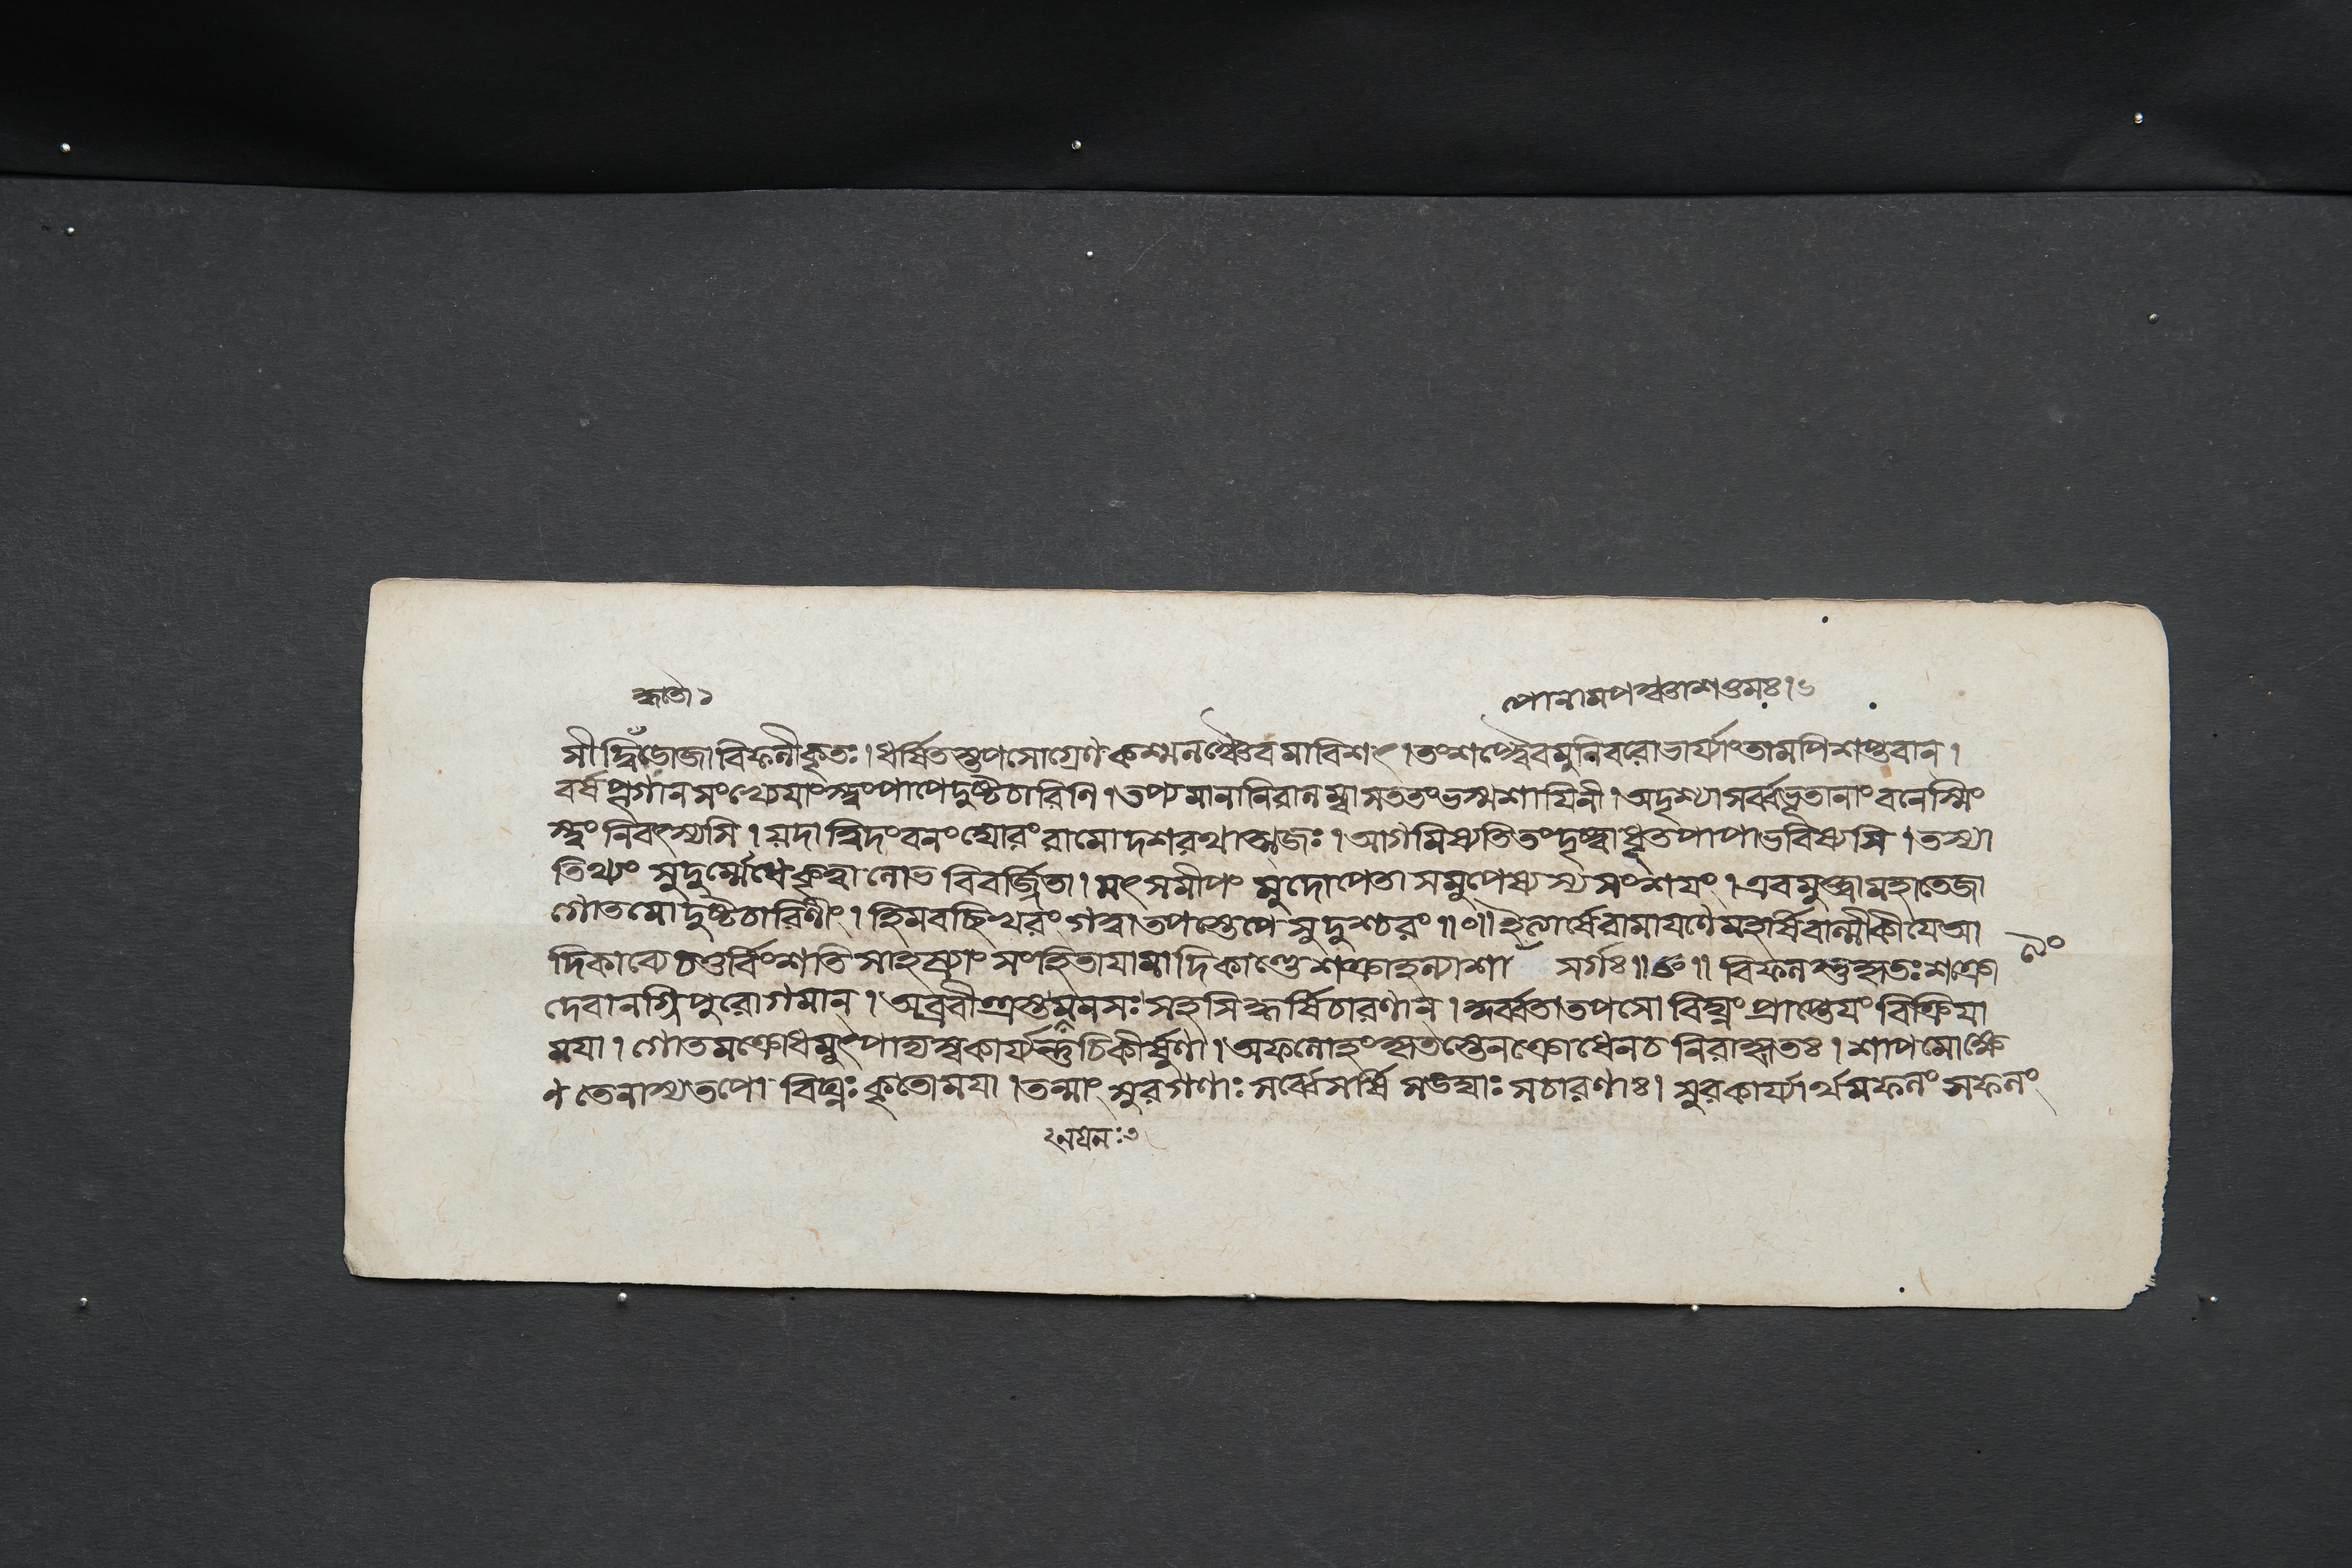 হৃতৌ ১
পোনামপঞ্চাশত্তমঃ।৬
সীদ্ধি তৌজা বিফলীকৃতঃ। ধর্ষিতস্তপসোগ্রেণ কশ্মলঞ্চৈবমাবিশৎ। তং শপ্ত্বৈবমুনিবরো ভার্য্যাং তামপি শপ্তবান্।
বর্ষপূগানসংখ্যেয়াংস্ত্বং পাপে দুষ্টচারিণি। তপ্যমানা নিরালম্বা সততং ভস্মশায়িনী। অদৃশ্যা সর্ব্বভূতানাং বনেস্মিং
স্ত্বং নিবৎস্যসি। য়দা ত্বিদং বনং ঘোরং রামো দশরথাত্মজঃ। আগমিষ্যতি তং দৃষ্ট্বা ধূতপাপা ভবিষ্যসি। তস্যা
তিথ্যং সুদুর্ম্মেধে কৃত্বা লোভবিবর্জ্জিতা। মৎসমীপং মুদোপেতা সমুপেষ্যস্যসংশয়ং। এবমুক্ত্বা মহাতেজা
গৌতমো দুষ্টচারিণীং। হিমবচ্ছিখরং গত্বা তপস্তেপে সুদুশ্চরং॥০॥ ইত্যার্ষে রামায়ণে মহর্ষিবাল্মীকীয়ে আ
দিকাব্যে চতুর্বিংশতিসাহস্র্যাং সংহিতায়ামাদিকাণ্ডে শক্রাহল্যাশা সর্গঃ॥৪৮॥ বিফলস্তু হৃতঃ শক্রো
দেবানগ্নিপুরোগমান্। অব্রবীত্ত্রস্তমনসঃ সহসিদ্ধর্ষিচারণান্। কুর্ব্বতা তপসো বিঘ্নং প্রাপ্তেয়ং বিক্রিয়া
ময়া। গৌতমক্রোধমুৎপাদ্য স্বকার্য্যন্তু চিকীর্ষুণা। অফলোহং হৃতস্তেন ক্রোধেন চ নিরাহৃতঃ। শাপমোক্ষে
ণ তেনাস্য তপো বিঘ্নঃ কৃতো ময়া। তন্মাং সুরগণাঃ সর্ব্বে সর্ষিসঙ্ঘাঃ সচারণাঃ। সুরকার্য্যার্থমফলং সফলং